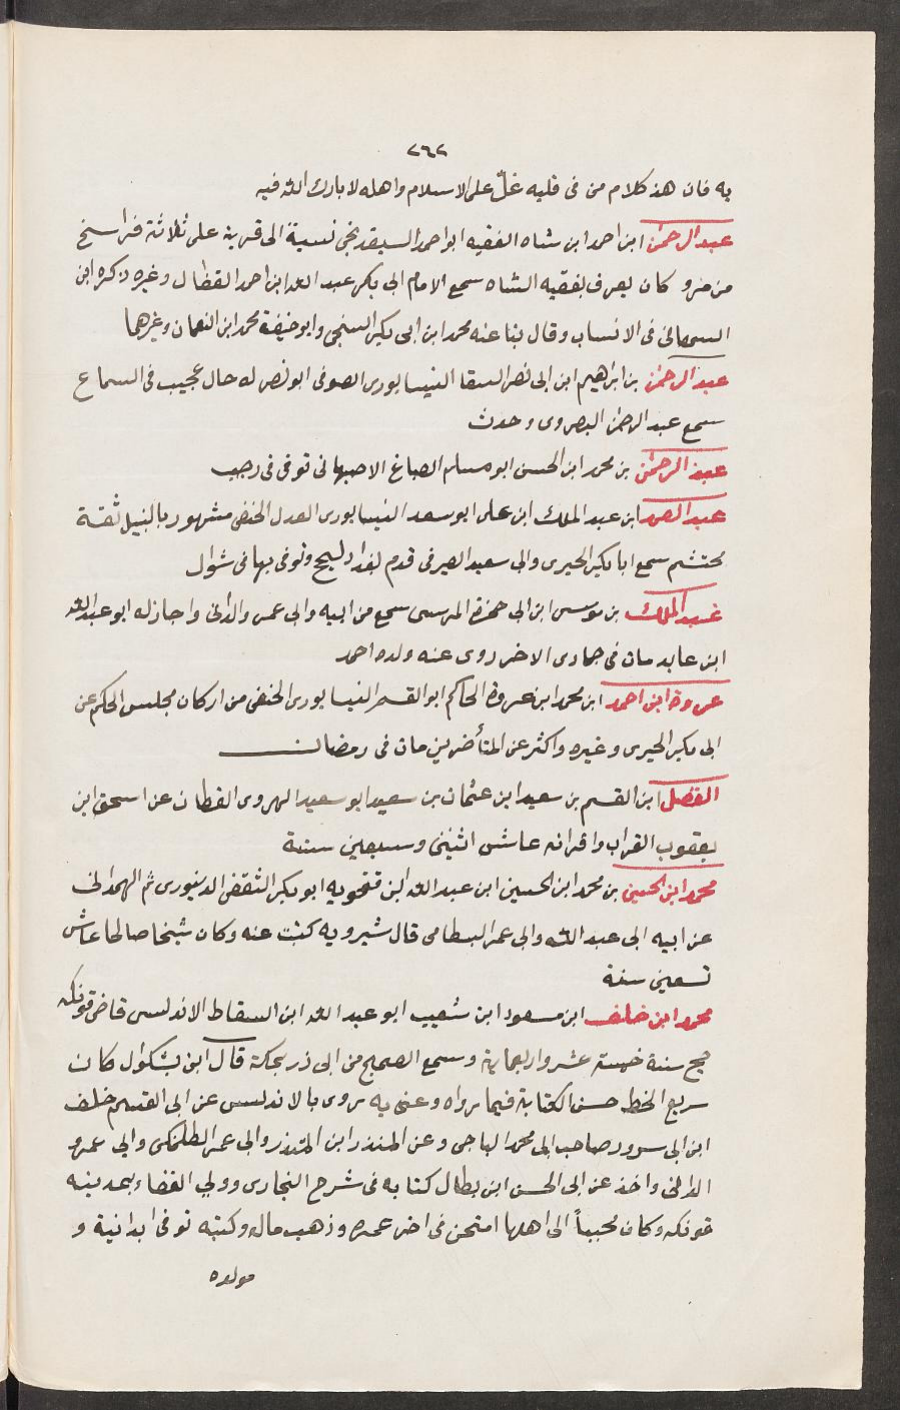 ٢٦٢
به فان هذ كلام من فى قلبه غلّ على الاسلام واهله لا بارك الله فيه
عبد الرحمن ابن احمد ابن شاه الفقيه ابو احمد السيقذنجى نسبة الى قرية على ثلاثة فراسخ
من مرو كان يعرف بفقيه الشاه سمع الامام ابى بكر عبد الله ابن احمد القفال وغيره ذكره ابن
السمعانى فى الانساب وقال بنا عنه محمد ابن ابى بكر السنجى وابو حنيفة محمد ابن النعمان وغيرهما
عبد الرحمن بن ابراهيم ابن ابى نصر السقا النيسابورى الصوفى ابو نصر له حال عجيب فى السماع
سمع عبد الرحمن النصروى وحدث
عبد الرحمن بن محمد ابن الحسن ابو مسلم الصباغ الاصبهانى توفى فى رجب
عبد الصمد ابن عبد الملك ابن على ابو سعد النيسابورى العدل الحنفى مشهور بالنبيل ثقة
محتشم سمع ابا بكر الحيرى وابى سعيد الصيرفى قدم بغداد ليحج وتوفى بها فى شوال
عبد الملك بن موسى ابن ابى حمزة المرسى سمع من ابيه وابى عمر والدانى واجاز له ابو عبد الله
ابن عابد مات فى جمادى الاخر روى عنه ولده احمد
عروة ابن احمد ابن محمد ابن عروة الحاكم ابو القسم النيسابورى الحنفى من اركان مجلس الحكم عن
ابى بكر الحيرى وغيره واكثر عن المتأخرين مات فى رمضان
الفضل ابن القسم بن سعيد ابن عثمان بن سعيد ابو سعيد الهروى القطان عن اسحق ابن
يعقوب القراب واقرانه عاش اثنين وسبعين سنة
محمد ابن الحسين بن محمد ابن الحسين ابن عبد الله ابن فنجويه ابو بكر الثقفى الدينورى ثم الهمدانى
عن ابيه ابى عبد الله وابى عمر البسطامى قال شيرويه كتبت عنه وكان شيخا صالحا عاش
تسعين سنة
محمد ابن خلف ابن مسعود ابن شعيب ابو عبد الله ابن السقاط الاندلسى قاضى قونكه
حج سنة خمسة عشر واربعماية وسمع الصحيح من ابى ذر بمكة قال ابن بشكوال كان
سريع الخط حسن الكتابة فيما رواه وعنى به روى بالاندلس عن ابى القسم خلف
ابن ابى سرور صاحب ابى محمد الباجى وعن المنذر ابن المنذر وابى عمر الطلمنكى وابي عمرو
الدانى واخذ عن ابى الحسن ابن بطال كتابه فى شرح البخارى وولي القضاء بمدينه
قونكه وكان محبباً الى اهلها امتحن فى اخر عمره وذهب ماله وكتبه توفى ابدانية و
مولده